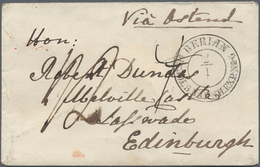 Via Ostend
Hon:
BERLIN
Robert Dundas
Melville Castle
Lasswade
Edinburgh